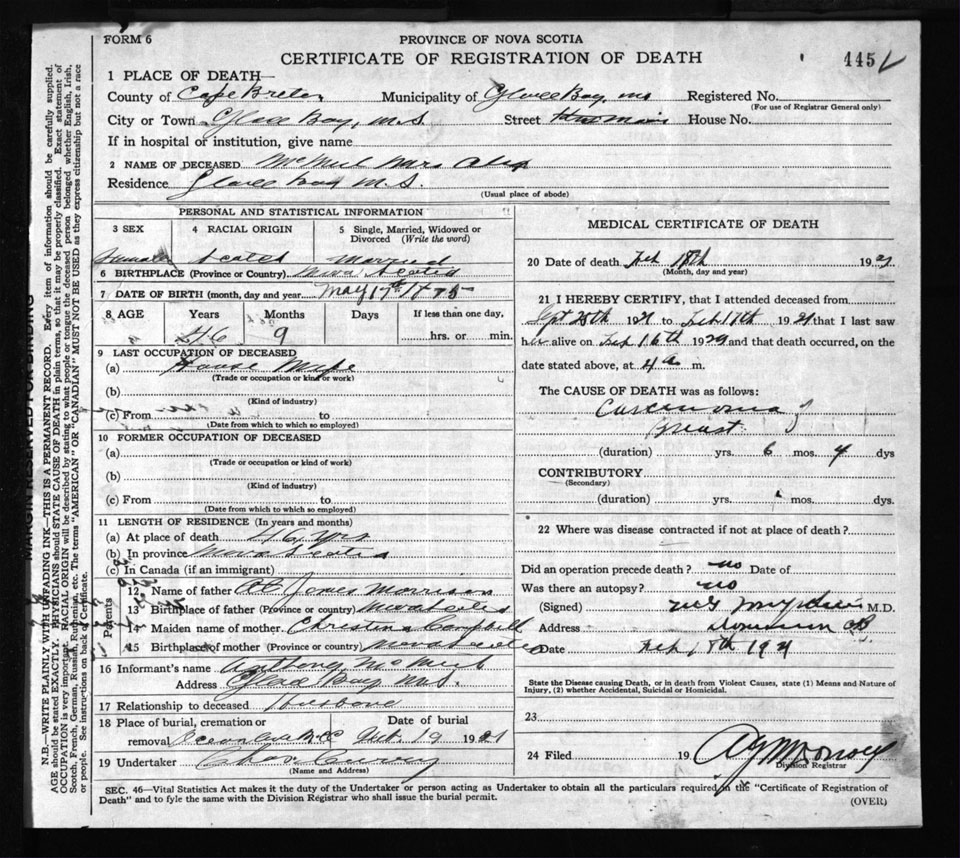 FORM 6
PROVINCE OF NOVA SCOTIA
CERTIFICATE OF REGISTRATION OF DEATH
445
1 PLACE OF DEATH—
County of Cape Breton Municipality of Glace Bay, N.S Registered No.
(For use of Registrar General only)
City or Town Glace Bay, N.S. Street House No.
If in hospital or institution, give name
2 NAME OF DECEASED McNeil Mrs Alex
Residence Glace Bay N.S.
(Usual place of abode)
PERSONAL AND STATISTICAL INFORMATION
3 SEX 4 RACIAL ORIGIN 5 Single, Married, Widowed or Divorced (Write the word)
Female Scotch Married
6 BIRTHPLACE (Province or Country) Nova Scotia
7 DATE OF BIRTH (month, day and year) May 17th 1875
8 AGE Years Months Days If less than one day,
9 hrs. or min.
9 LAST OCCUPATION OF DECEASED
(a) House Wife
(Trade or occupation or kind of work)
(b)
(Kind of industry)
(c) From to
(Date from which to which so employed)
10 FORMER OCCUPATION OF DECEASED
(a)
(Trade or occupation or kind of work)
(b)
(Kind of industry)
(c) From to
(Date from which to which so employed)
11 LENGTH OF RESIDENCE (In years and months)
(a) At place of death yrs
(b) In province Nova Scotia
(c) In Canada (if an immigrant)
Parents
12 Name of father James Morrison
13 Birthplace of father (Province or country) Nova Scotia
14 Maiden name of mother Christena Campbell
15 Birthplace of mother (Province or country) Nova Scotia
16 Informant's name Anthony McNeil
Address Glace Bay N.S.
17 Relationship to deceased Husband
18 Place of burial, cremation or Date of burial
removal 19 1921
19 Undertaker Curry
(Name and Address)
MEDICAL CERTIFICATE OF DEATH
20 Date of death Feb 18th 1921
(Month, day and year)
21 I HEREBY CERTIFY, that I attended deceased from
Sept 25th to Feb 17th 1921 that I last saw
her alive on Feb 16th and that death occurred, on the
date stated above, at 4 a m.
The CAUSE OF DEATH was as follows:
Carcinoma of
Breast
(duration) yrs. 6 mos. 4 dys
CONTRIBUTORY
(Secondary)
(duration) yrs. mos. dys.
22 Where was disease contracted if not at place of death?
Did an operation precede death? no Date of
Was there an autopsy? no
(Signed) M.D.
Address Dominion CB
Date Feb 18th 1921
State the Disease causing Death, or in death from Violent Causes, state (1) Means and Nature of Injury, (2) whether Accidental, Suicidal or Homicidal.
23
24 Filed 19
Division Registrar
SEC. 46—Vital Statistics Act makes it the duty of the Undertaker or person acting as Undertaker to obtain all the particulars required in the "Certificate of Registration of
Death" and to fyle the same with the Division Registrar who shall issue the burial permit.
(OVER)
MARGIN RESERVED FOR BINDING
N.B.—WRITE PLAINLY WITH UNFADING INK—THIS IS A PERMANENT RECORD. Every item of information should be carefully supplied.
AGE should be stated EXACTLY. PHYSICIANS should STATE CAUSE OF DEATH in plain terms, so that it may be properly classified. Exact statement of
OCCUPATION is very important. RACIAL ORIGIN will be described by stating to what people or tongue the deceased person belonged whether English, Irish,
Scotch, French, German, Russian, Ruthenian, etc. The terms "AMERICAN" OR "CANADIAN" MUST NOT BE USED as they express citizenship but not a race
or people. See instructions on back of Certificate.